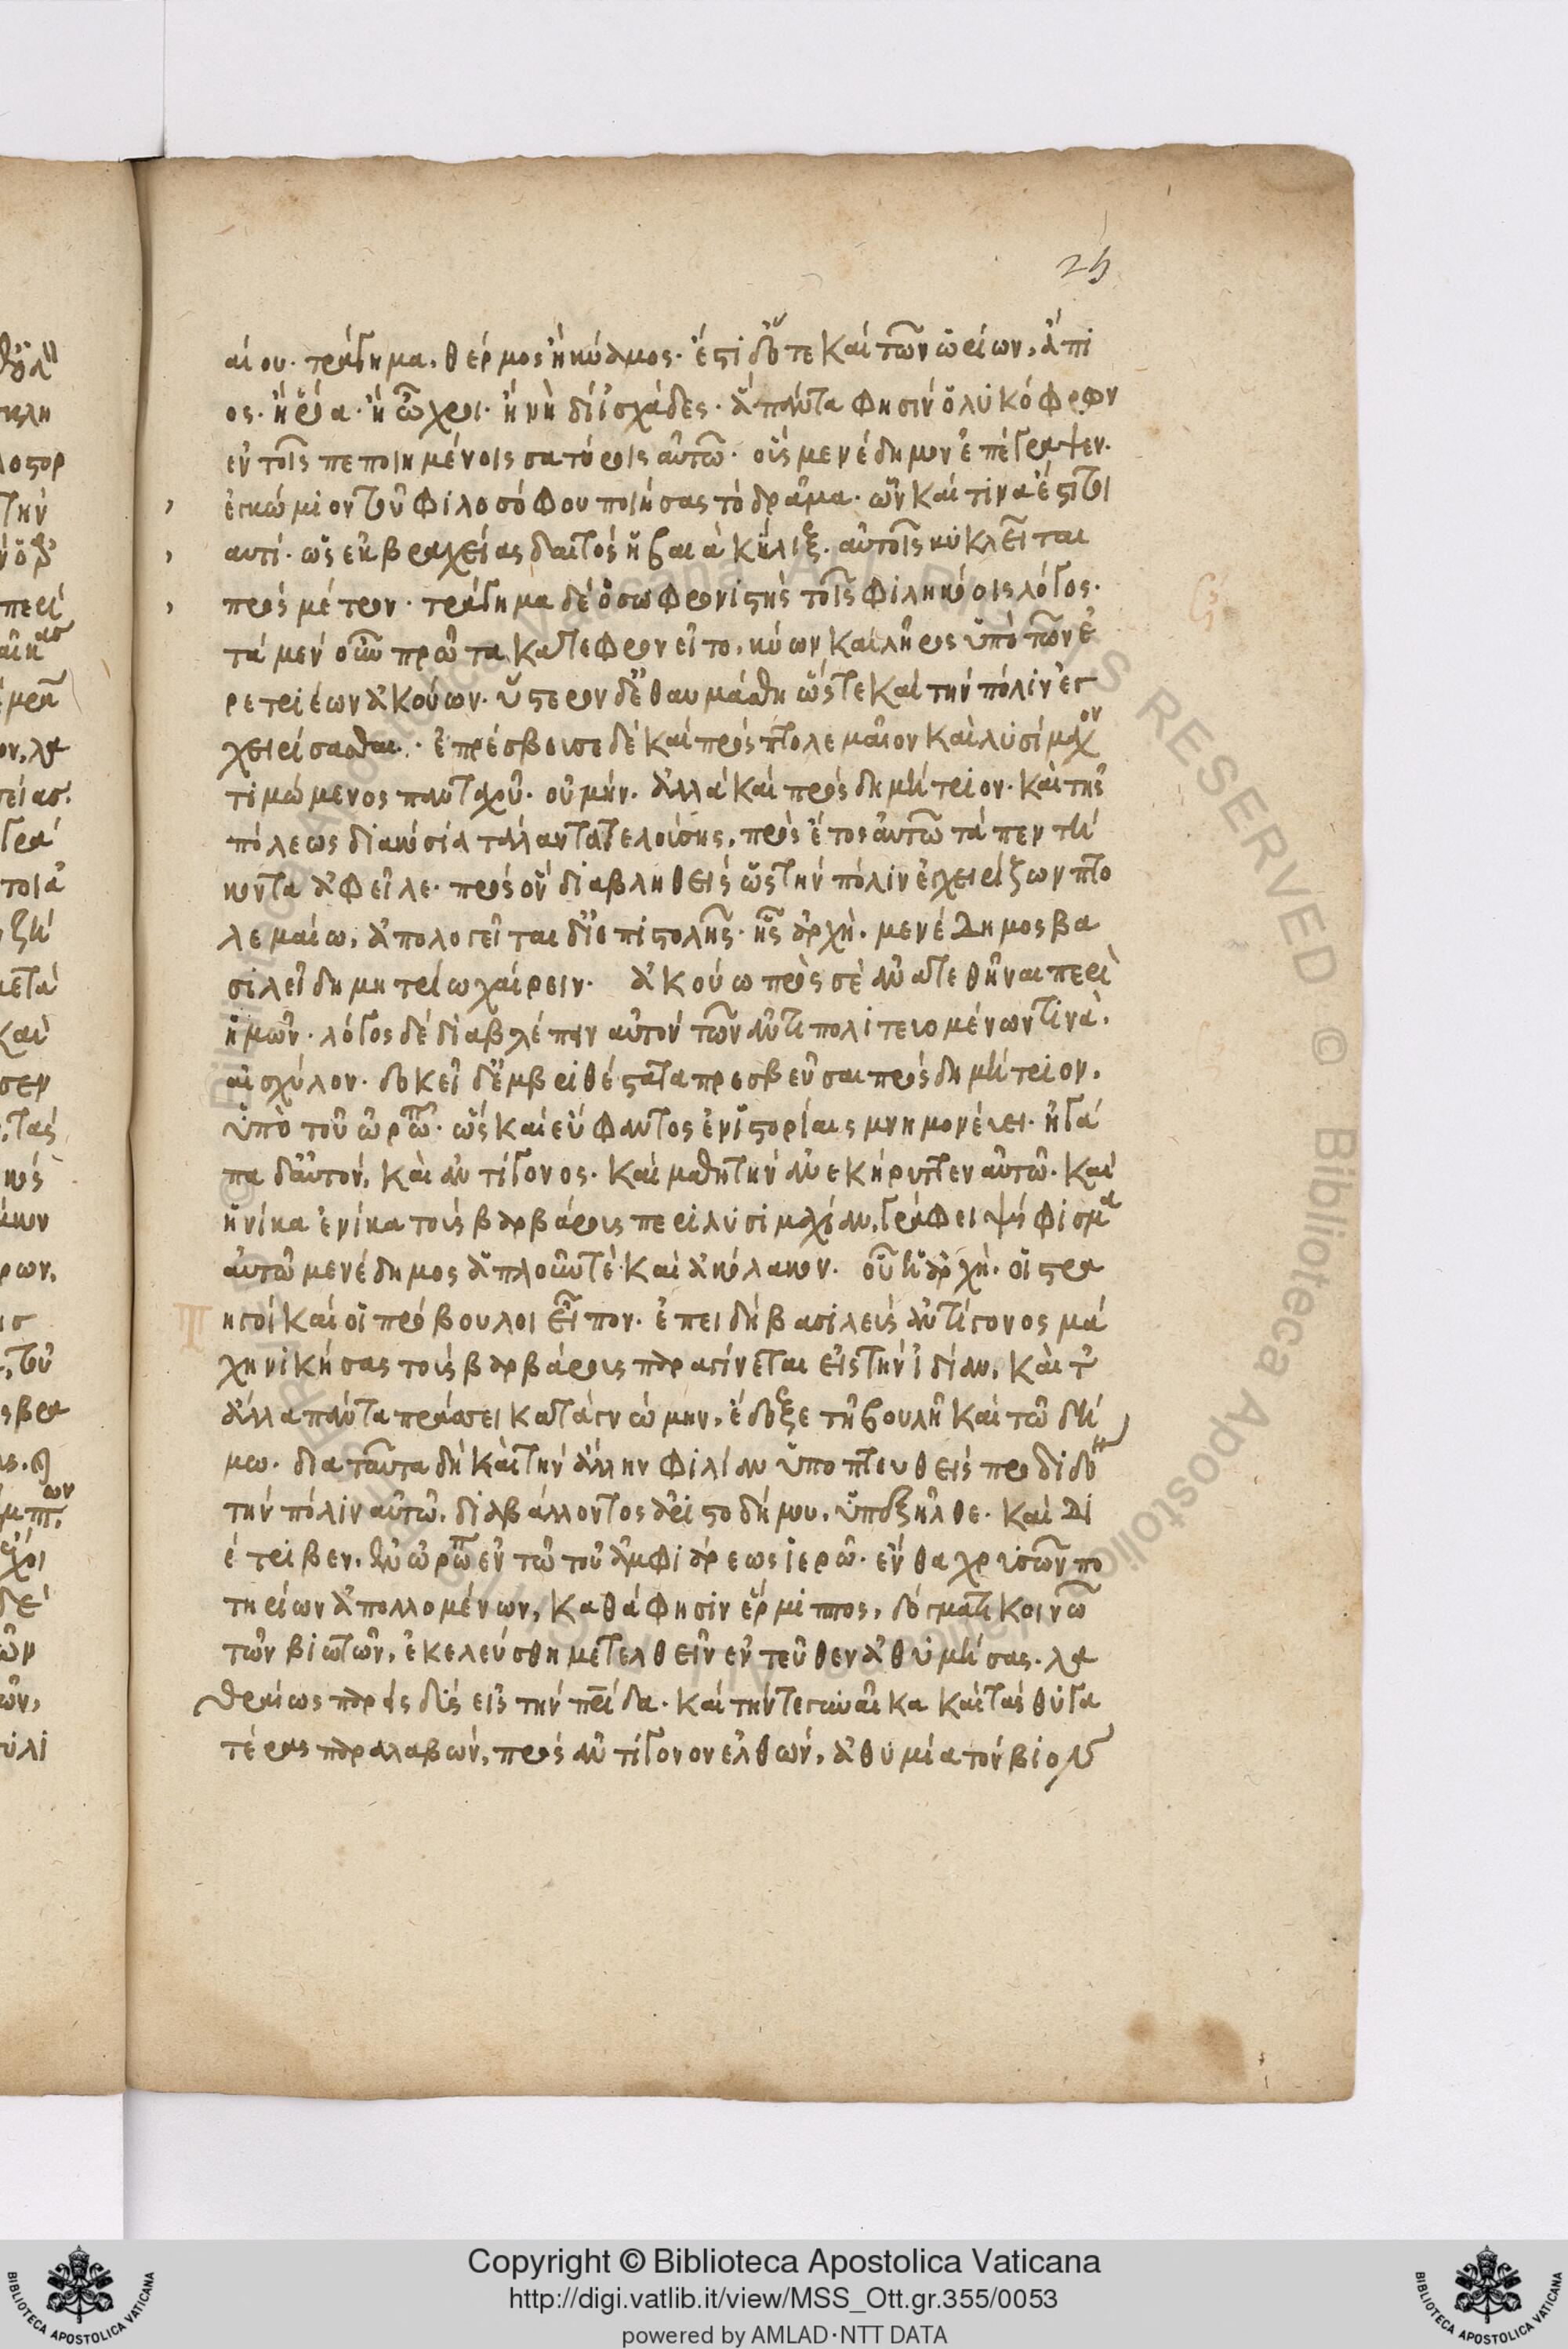 25
αίου· τράγημα, θέρμος ἢ κύαμος· ἔστι δ' ὅτε καὶ τῶν ὡρίων, ἄπι
ος· ἢ ῥόα· ἢ ὦχροι· ἢ νὴ δί' ἰσχάδες· ἃ πάντα φησὶν ὁ λυκόφρον
ἐν τοῖς πεποιημένοις σατύροις αὐτῶ· οὓς μενέδημον ἐπέγραψεν·
ἐγκώμιον τοῦ φιλοσόφου ποιήσας τὸ δρᾶμα· ὧν καί τινα ἐστὶ τοι
αυτί· ὡς ἐκ βραχείας δαιτὸς ἡ βαιὰ κῆλιξ· αὐτοῖς κυκλεῖται
πρὸς μέτρον· τράγημα δὲ ὁ σωφρονιστὴς τοῖς φιληκόοις λόγος·
τὰ μὲν οὖν πρῶτα κατεφρονεῖτο, κύων καὶ λῆρος ὑπὸ τῶν ἐ
ρετριέων ἀκούων· ὕστερον δ' ἐθαυμάσθη ὥστε καὶ τὴν πόλιν ἐγ
χειρίσασθαι· ἐπρέσβευσε δὲ καὶ πρὸς πτολεμαῖον καὶ λυσίμαχον
τιμώμενος πανταχοῦ· οὐ μὴν· ἀλλὰ καὶ πρὸς δημήτριον· καὶ τῆς
πόλεως διακόσια τάλαντα τελούσης, πρὸς ἔτος αὐτῶ τὰ πεντή
κοντα ἀφεῖλε· πρὸς ὃν διαβληθεὶς ὡς τὴν πόλιν ἐγχειρίζων πτο
λεμαίω, ἀπολογεῖται δι' ἐπιστολῆς· ἧς ἀρχὴ· μενέδημος βα
σιλεῖ δημητρίω χαίρειν· ἀκούω πρὸς σὲ ἀνατεθῆναι περὶ
ἡμῶν· λόγος δὲ διαβλέπειν αὐτὸν τῶν ἀντιπολιτευομένων τινὰ·
αἰσχύλον· δοκεῖ δ' ἐμβριθέστατα πρεσβεῦσαι πρὸς δημήτριον,
ὑπὸ τοῦ ὠρωπῶ· ὡς καὶ εὔφαντος ἐν ἱστορίαις μνημονεύει· ἠγά
πα δ' αὐτὸν, καὶ ἀντίγονος· καὶ μαθητὴν ἀνεκήρυττεν αὐτῶ· καὶ
ἡνίκα ἐνίκα τοὺς βαρβάρους περὶ λυσιμαχίαν, γράφει ψήφισμα
αὐτῶ μενέδημος ἁπλοῦν τὲ καὶ ἀκόλακον· οὗ ἡ ἀρχὴ· οἱ στρα
ηγοὶ καὶ οἱ πρόβουλοι εἶπον· ἐπειδὴ βασιλεὺς ἀντίγονος μά
χη νικήσας τοὺς βαρβάρους παραγίνεται εἰς τὴν ἰδίαν, καὶ τ'
ἄλλα πάντα πράσσει κατὰ γνώμην, ἔδοξε τῆ βουλῆ καὶ τῶ δή
μω· δια ταῦτα δὴ καὶ τὴν ἄλλην φιλίαν ὑποπτευθεὶς προδιδόναι
τὴν πόλιν αὐτῶ, διαβάλλοντος ἀριστοδήμου, ὑπεξῆλθε· καὶ δι
έτριβεν, ἐν ὠρωπῶ ἐν τῶ τοῦ ἀμφιάρεως ἱερῶ· ἔνθα χρυσῶν πο
τηρίων ἀπολλομένων, καθά φησιν ἕρμιππος, δόγματι κοινῶ
τῶν βιωτῶν, ἐκελεύσθη μετελθεῖν ἐντεῦθεν ἀθυμήσας· λα
θραίως παρεὶς δὺς εἰς τὴν πρίδα· καὶ τήν τε γυναῖκα καὶ τὰς θυγα
τέρας παραλαβών, πρὸς ἀντίγονον ἐλθών, ἀθυμία τὸν βίον
Copyright © Biblioteca Apostolica Vaticana
http://digi.vatlib.it/view/MSS_Ott.gr.355/0053
powered by AMLAD·NTT DATA
BIBLIOTECA APOSTOLICA VATICANA
BIBLIOTECA APOSTOLICA VATICANA